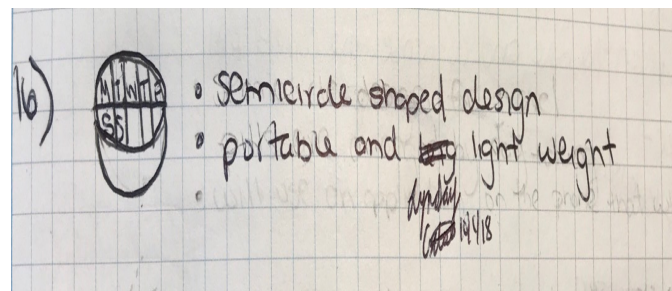 16)
M T W T F
S S
• semicircle shaped design
• portable and light weight
•
Lynday
14/4/18